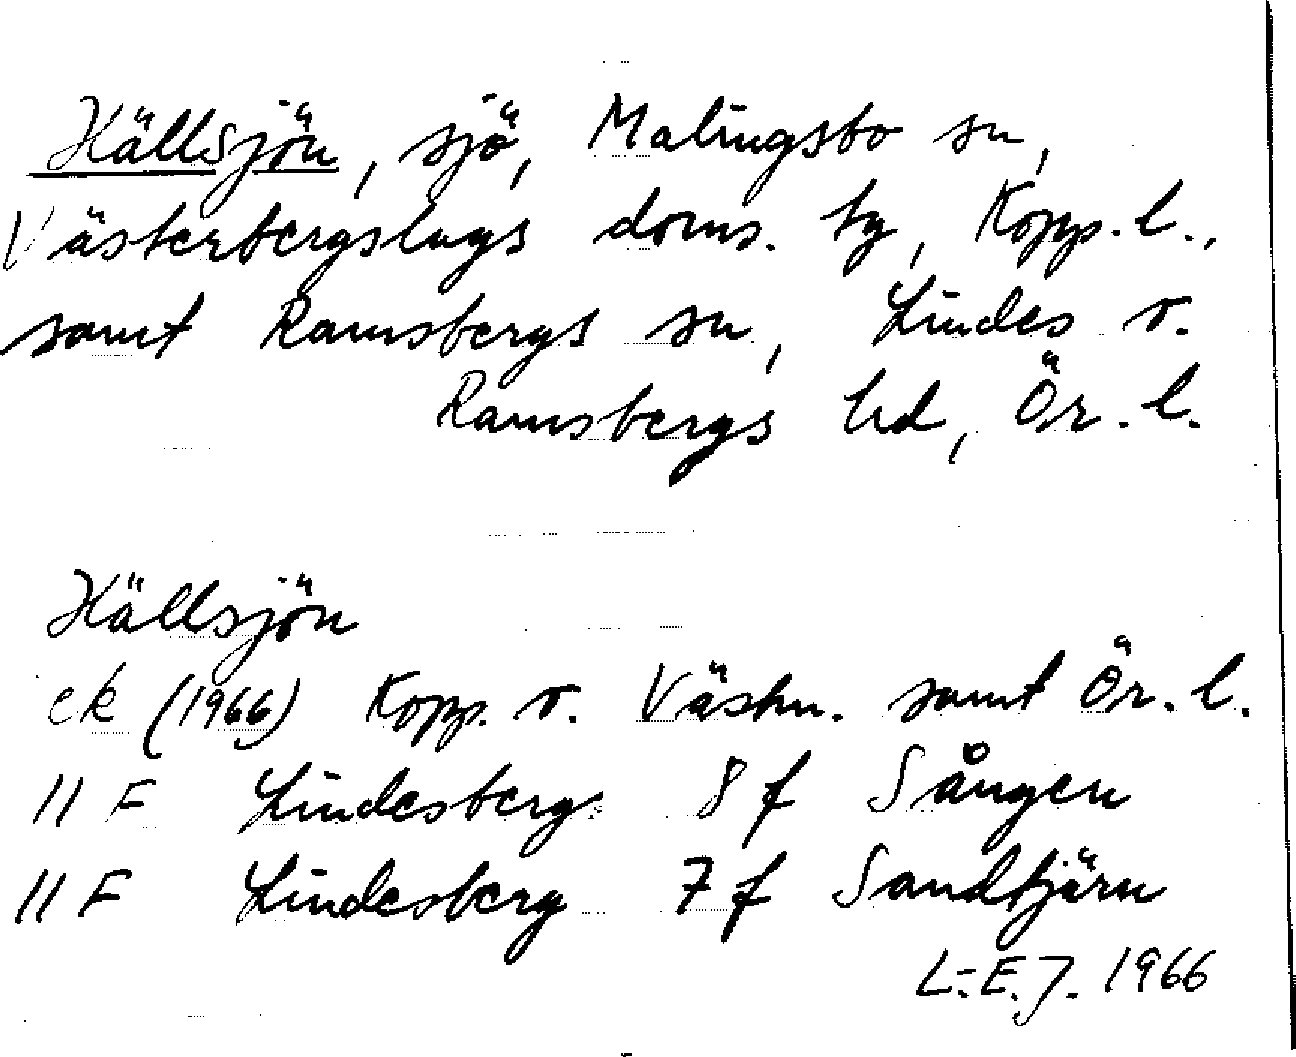 Hällsjön, sjö, Malingsbo sn,
Västerbergslags doms. tg, Kopp. l.,
samt Ramsbergs sn, Lindes o.
Ramsbergs hd, Ör. l.
Hällsjön
ek (1966) Kopp. o. Västm. samt Ör. l.
11 F Lindesberg 8 f Sången
11 F Lindesberg 7 f Sandtjärn
L.-E.J. 1966